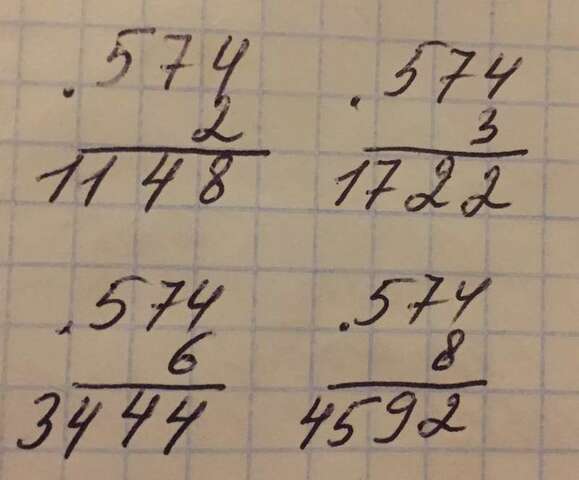 .574 .574
2 3
1148 1722
.574 .574
6 8
3444 4592